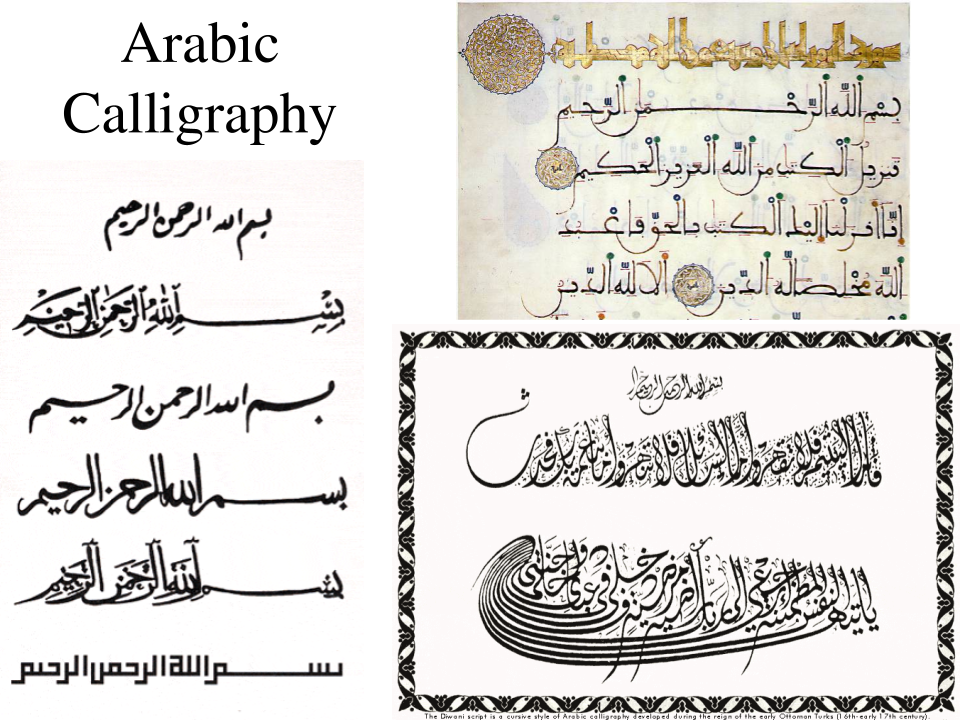 Arabic
Calligraphy
بسم الله الرحمن الرحيم
بسم الله الرحمن الرحيم
بسم الله الرحمن الرحيم
بسم الله الرحمن الرحيم
بسم الله الرحمن الرحيم
بسم الله الرحمن الرحيم
بسم الله الرحمن الرحيم
تنزيل الكتب من الله العزيز الحكيم
انا انزلنا اليك الكتب بالحق فاعبد
الله مخلصا له الدين الا لله الدين
بسم الله الرحمن الرحيم
فأما اليتيم فلا تقهر وأما السائل فلا تنهر وأما بنعمة ربك فحدث
يا أيتها النفس المطمئنة ارجعي إلى ربك راضية مرضية فادخلي في عبادي وادخلي جنتي
The Diwani script is a cursive style of Arabic calligraphy developed during the reign of the early Ottoman Turks (16th-early 17th century).